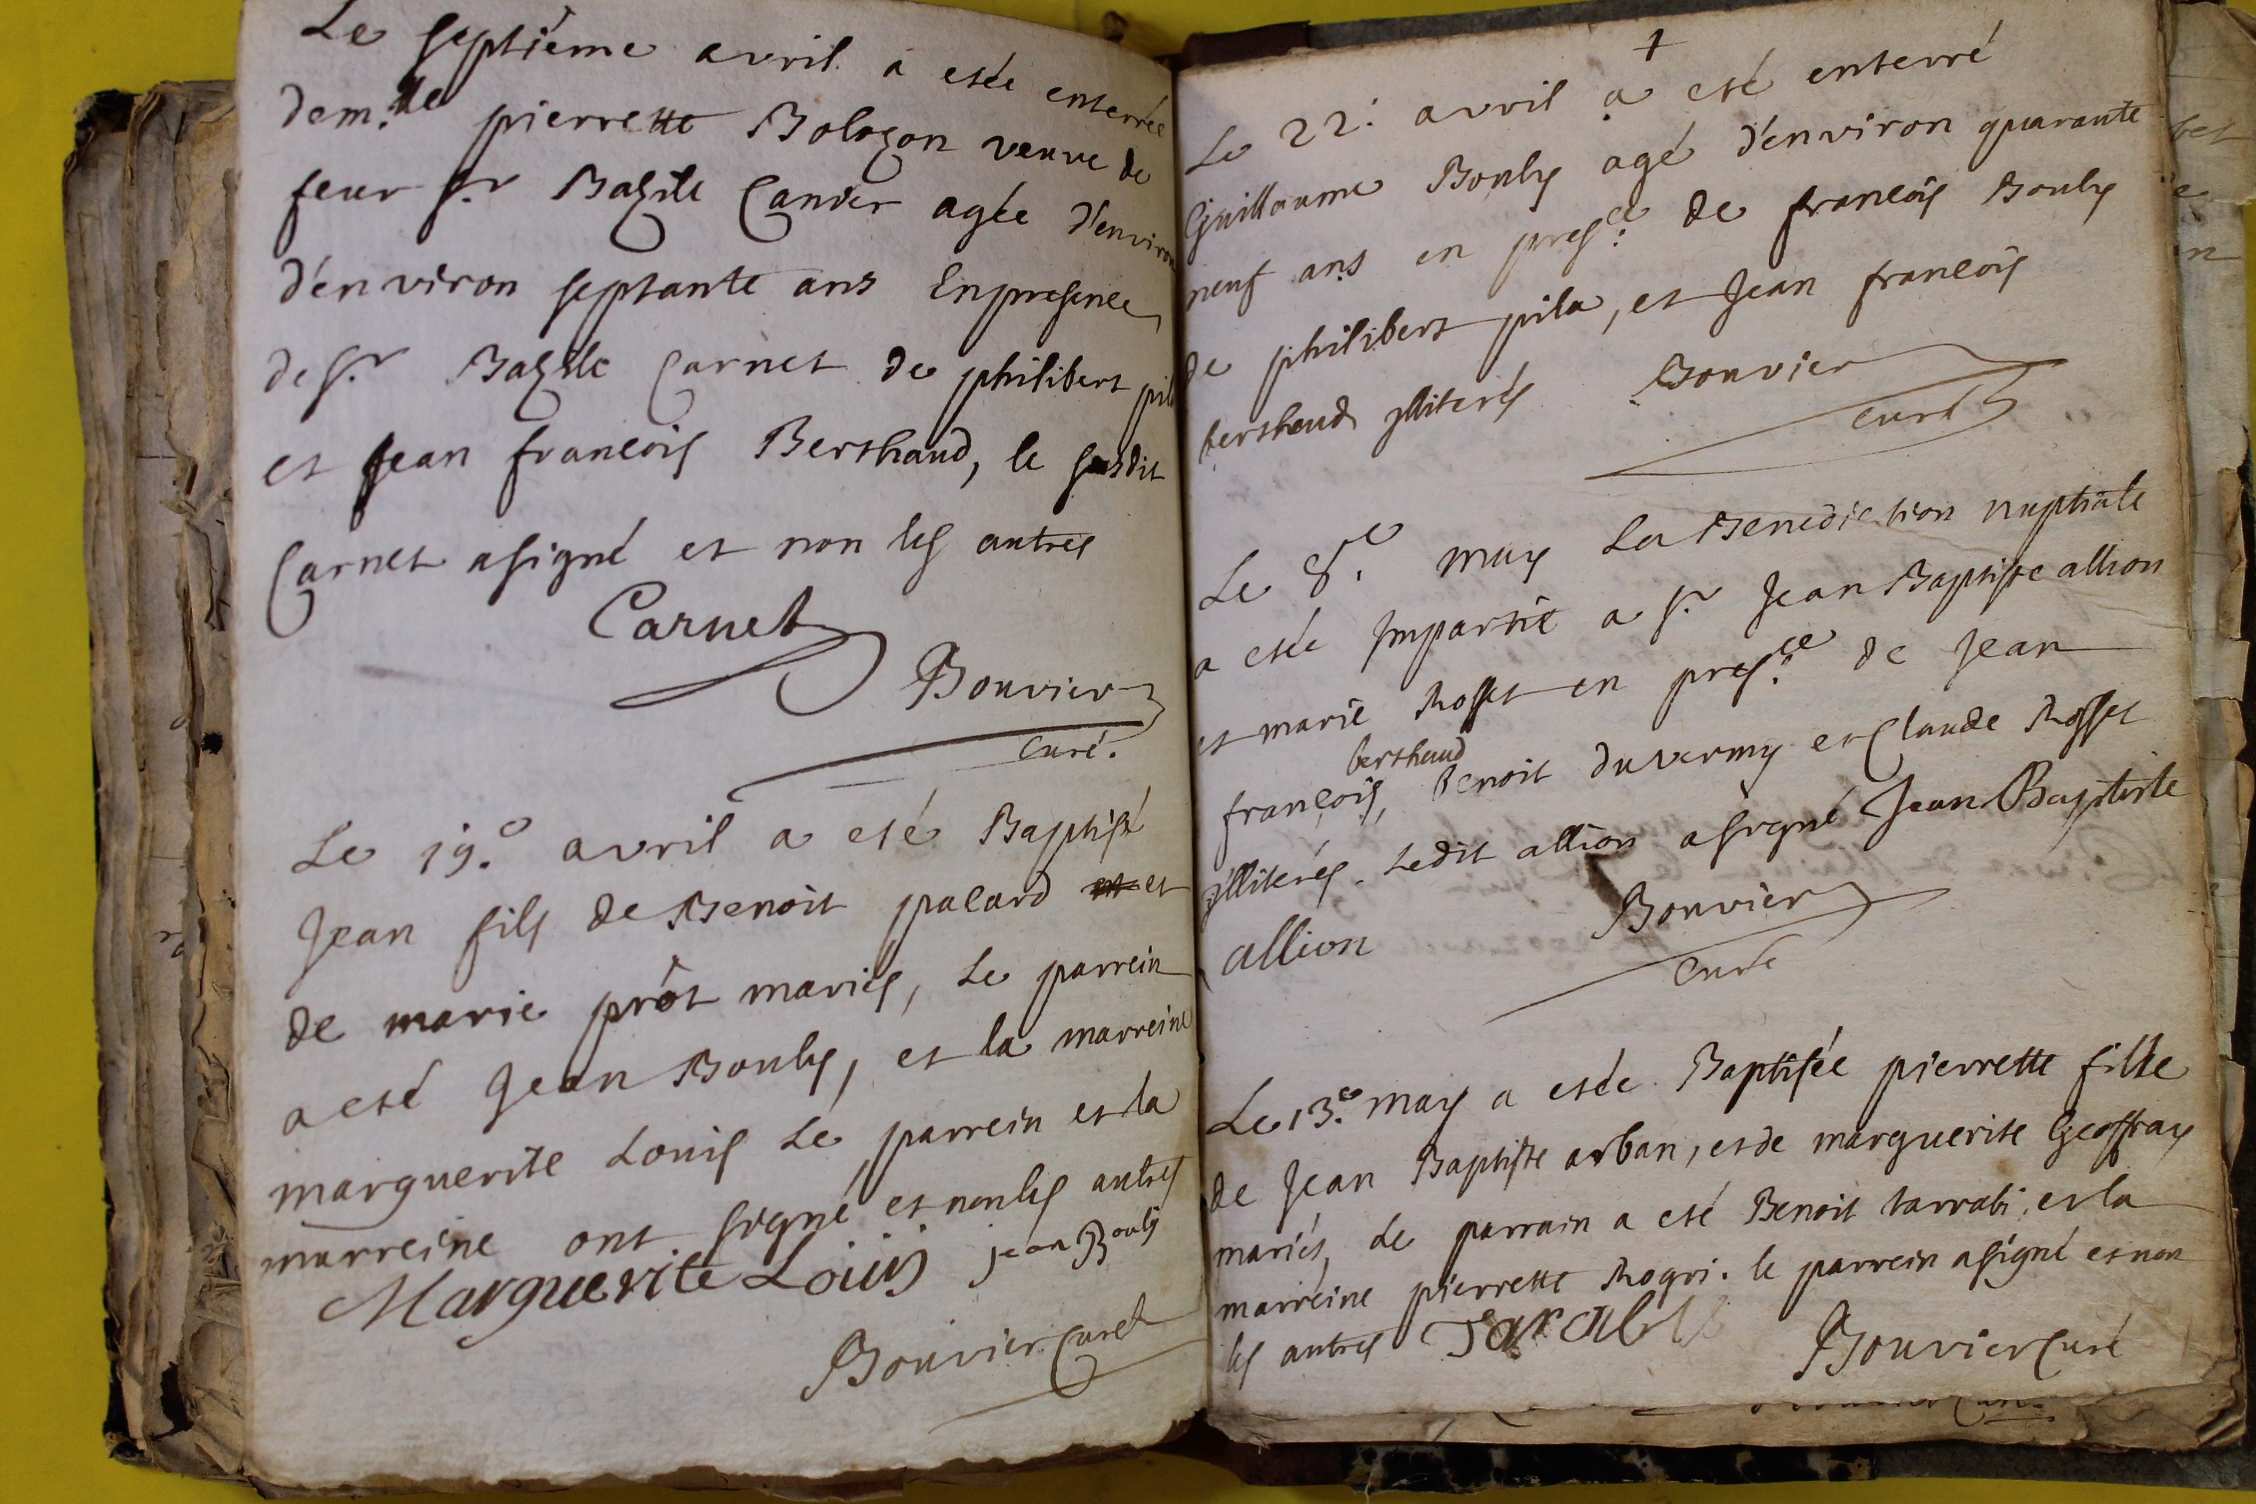 Le septiéme avril a etée enterrée
dem.lle pierrette Bolozon veuve de
feur sr. Bazile Canier agée d'environ
d'environ septante ans En presence
de sr. Bazile Carnet de philibert pila
et Jean francois Berthaud, le susdit
Carnet a signé et non les autres
Carnet
Bouvier
curé.
Le 19.e avril a eté Baptisé
Jean fils de Benoit palard et
de marie prôt mariés, Le parrein
a eté Jean Bouly, et la marreine
marguerite Louis Le parrein et la
marreine ont signé et non les autres
Marguerite Louis jean Bouly
Bouvier Curé
Le 22: avril a eté enterré
Guillaume Bouly agé d'environ quarante
neuf ans en presce. de francois Bouly
de philibert pila, et Jean francois
berthaud illiterés Bouvier
curé
Le 8.e may La Benediction nuptiale
a etée Impartie a sr. Jean Baptiste allion
et marie Rosset en presce. de Jean
berthaud
françois, Benoit duverny et Claude Rosset
illiterés. Ledit allion a signé Jean Baptiste
allion Bouvier
curé
Le 13.e may a etée Baptisée pierrette fille
de Jean Baptiste arban, et de marguerite Geoffray
mariés, Le parrain a eté Benoit tarrabi, et la
marreine pierrette Rogri. le parrein a signé et non
les autres Bouvier Curé